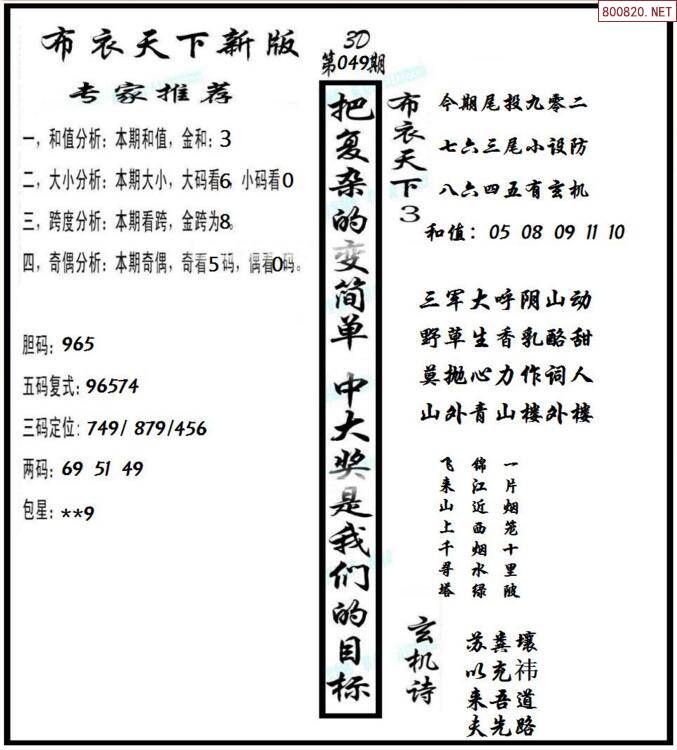 800820.NET
布衣天下新版
专家推荐
一，和值分析：本期和值，金和：3
二，大小分析：本期大小，大码看6，小码看0
三，跨度分析：本期看跨，金跨为8。
四，奇偶分析：本期奇偶，奇看5码，偶看0码。
胆码：965
五码复式：96574
三码定位：749/ 879/456
两码：69 51 49
包星：**9
3D
第049期
把复杂的变简单 中大奖是我们的目标
布衣天下3
今期尾投九零二
七六三尾小设防
八六四五有玄机
和值：05 08 09 11 10
三军大呼阴山动
野草生香乳酪甜
莫抛心力作词人
山外青山楼外楼
一片烟笼十里陂
锦江近西烟水绿
飞来山上千寻塔
玄机诗
苏粪壤
以充祎
来吾道
夫先路